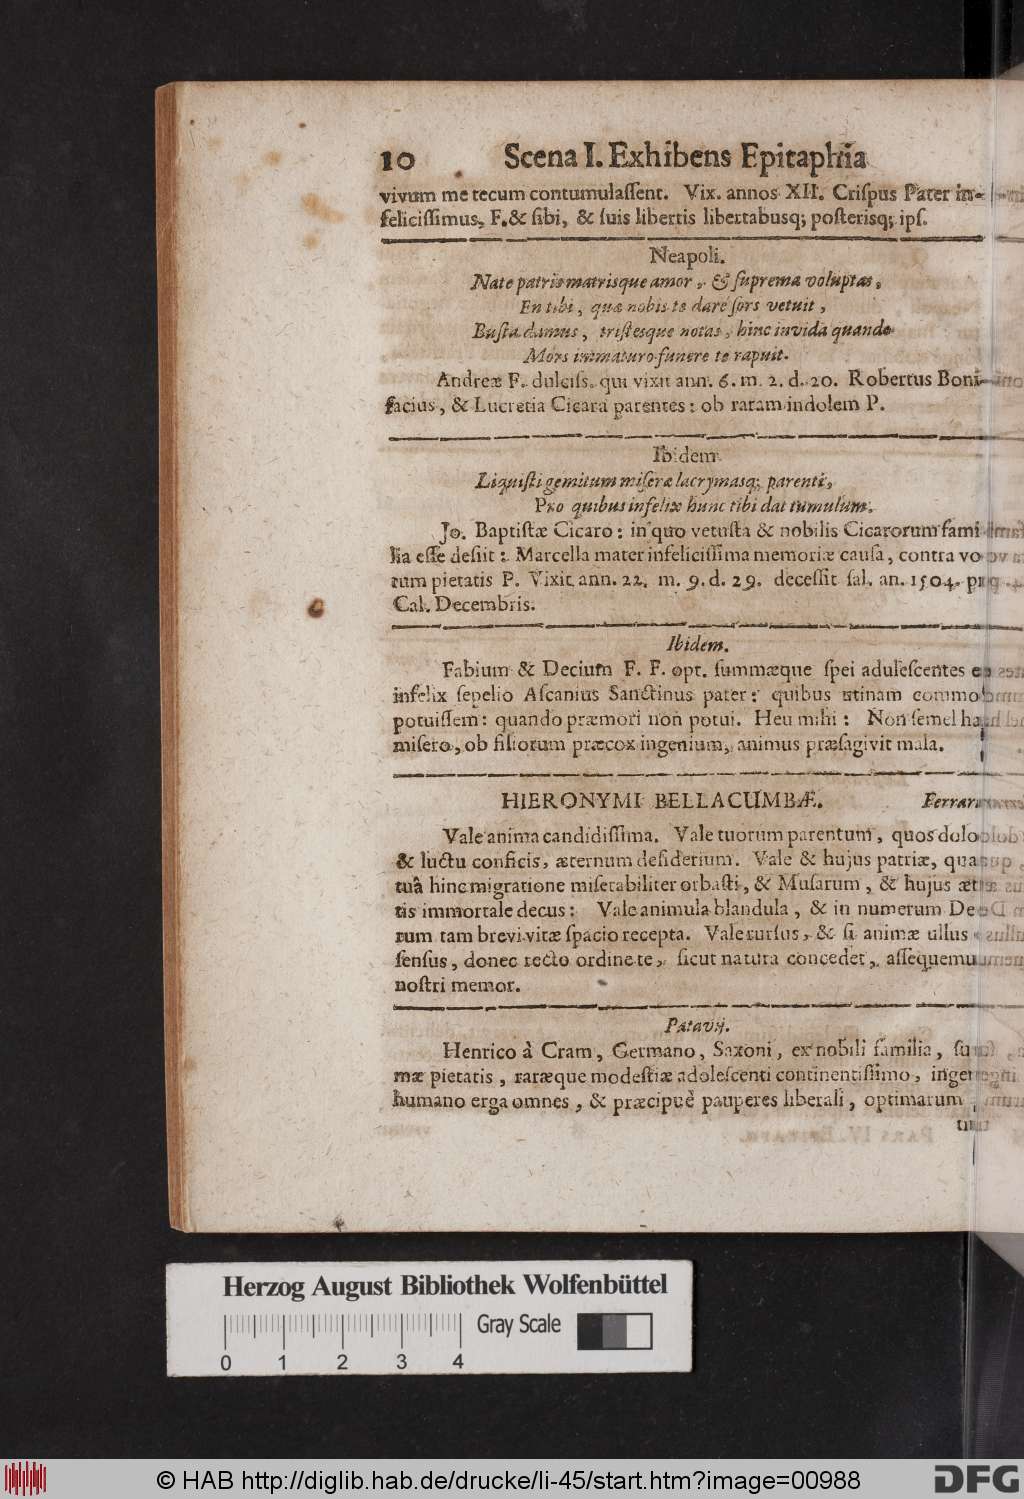 10 Scena I. Exhibens Epitaphia
vivum me tecum contumulaſſent. Vix. annos XII. Criſpus Pater in-
feliciſſimus, F. & ſibi, & ſuis libertis libertabusq; poſterisq; ipſ.
Neapoli.
Nate patris matrisque amor, & ſuprema voluptas,
En tibi, quæ nobis te dare ſors vetuit,
Buſta damus, triſtesque notas, hinc invida quando
Mors immaturo funere te rapuit.
Andreæ F. dulciſs. qui vixit ann. 6. m. 2. d. 20. Robertus Boni-
facius, & Lucretia Cicara parentes: ob raram indolem P.
Ibidem.
Liquiſti gemitum miſeræ lacrymasq; parenti,
Pro quibus infelix hunc tibi dat tumulum.
Jo. Baptiſtæ Cicaro: in quo vetuſta & nobilis Cicarorum fami
lia eſſe deſiit: Marcella mater infeliciſſima memoriæ cauſa, contra vo
tum pietatis P. Vixit ann. 22. m. 9. d. 29. deceſſit ſal. an. 1504. prid.
Cal. Decembris.
Ibidem.
Fabium & Decium F. F. opt. ſummæque ſpei aduleſcentes eo
infelix ſepelio Aſcanius Sanctinus pater: quibus utinam commo
potuiſſem: quando præmori non potui. Heu mihi: Non ſemel hæc
miſero, ob filiorum præcox ingenium, animus præſagivit mala.
HIERONYMI BELLACUMBÆ. Ferrar
Vale anima candidiſſima. Vale tuorum parentum, quos dolo
& luctu conficis, æternum deſiderium. Vale & hujus patriæ, quam
tuâ hinc migratione miſerabiliter orbaſti, & Muſarum, & hujus æta
tis immortale decus: Vale animula blandula, & in numerum De
rum tam brevi vitæ ſpacio recepta. Vale rurſus, & ſi animæ ullus
ſenſus, donec recto ordine te, ſicut natura concedet, aſſequemu
noſtri memor.
Patavij.
Henrico à Cram, Germano, Saxoni, ex nobili familia, ſum
mæ pietatis, raræque modeſtiæ adoleſcenti continentiſſimo, ingen
humano erga omnes, & præcipuè pauperes liberali, optimarum
Herzog August Bibliothek Wolfenbüttel
Gray Scale
0 1 2 3 4
© HAB http://diglib.hab.de/drucke/li-45/start.htm?image=00988
DFG